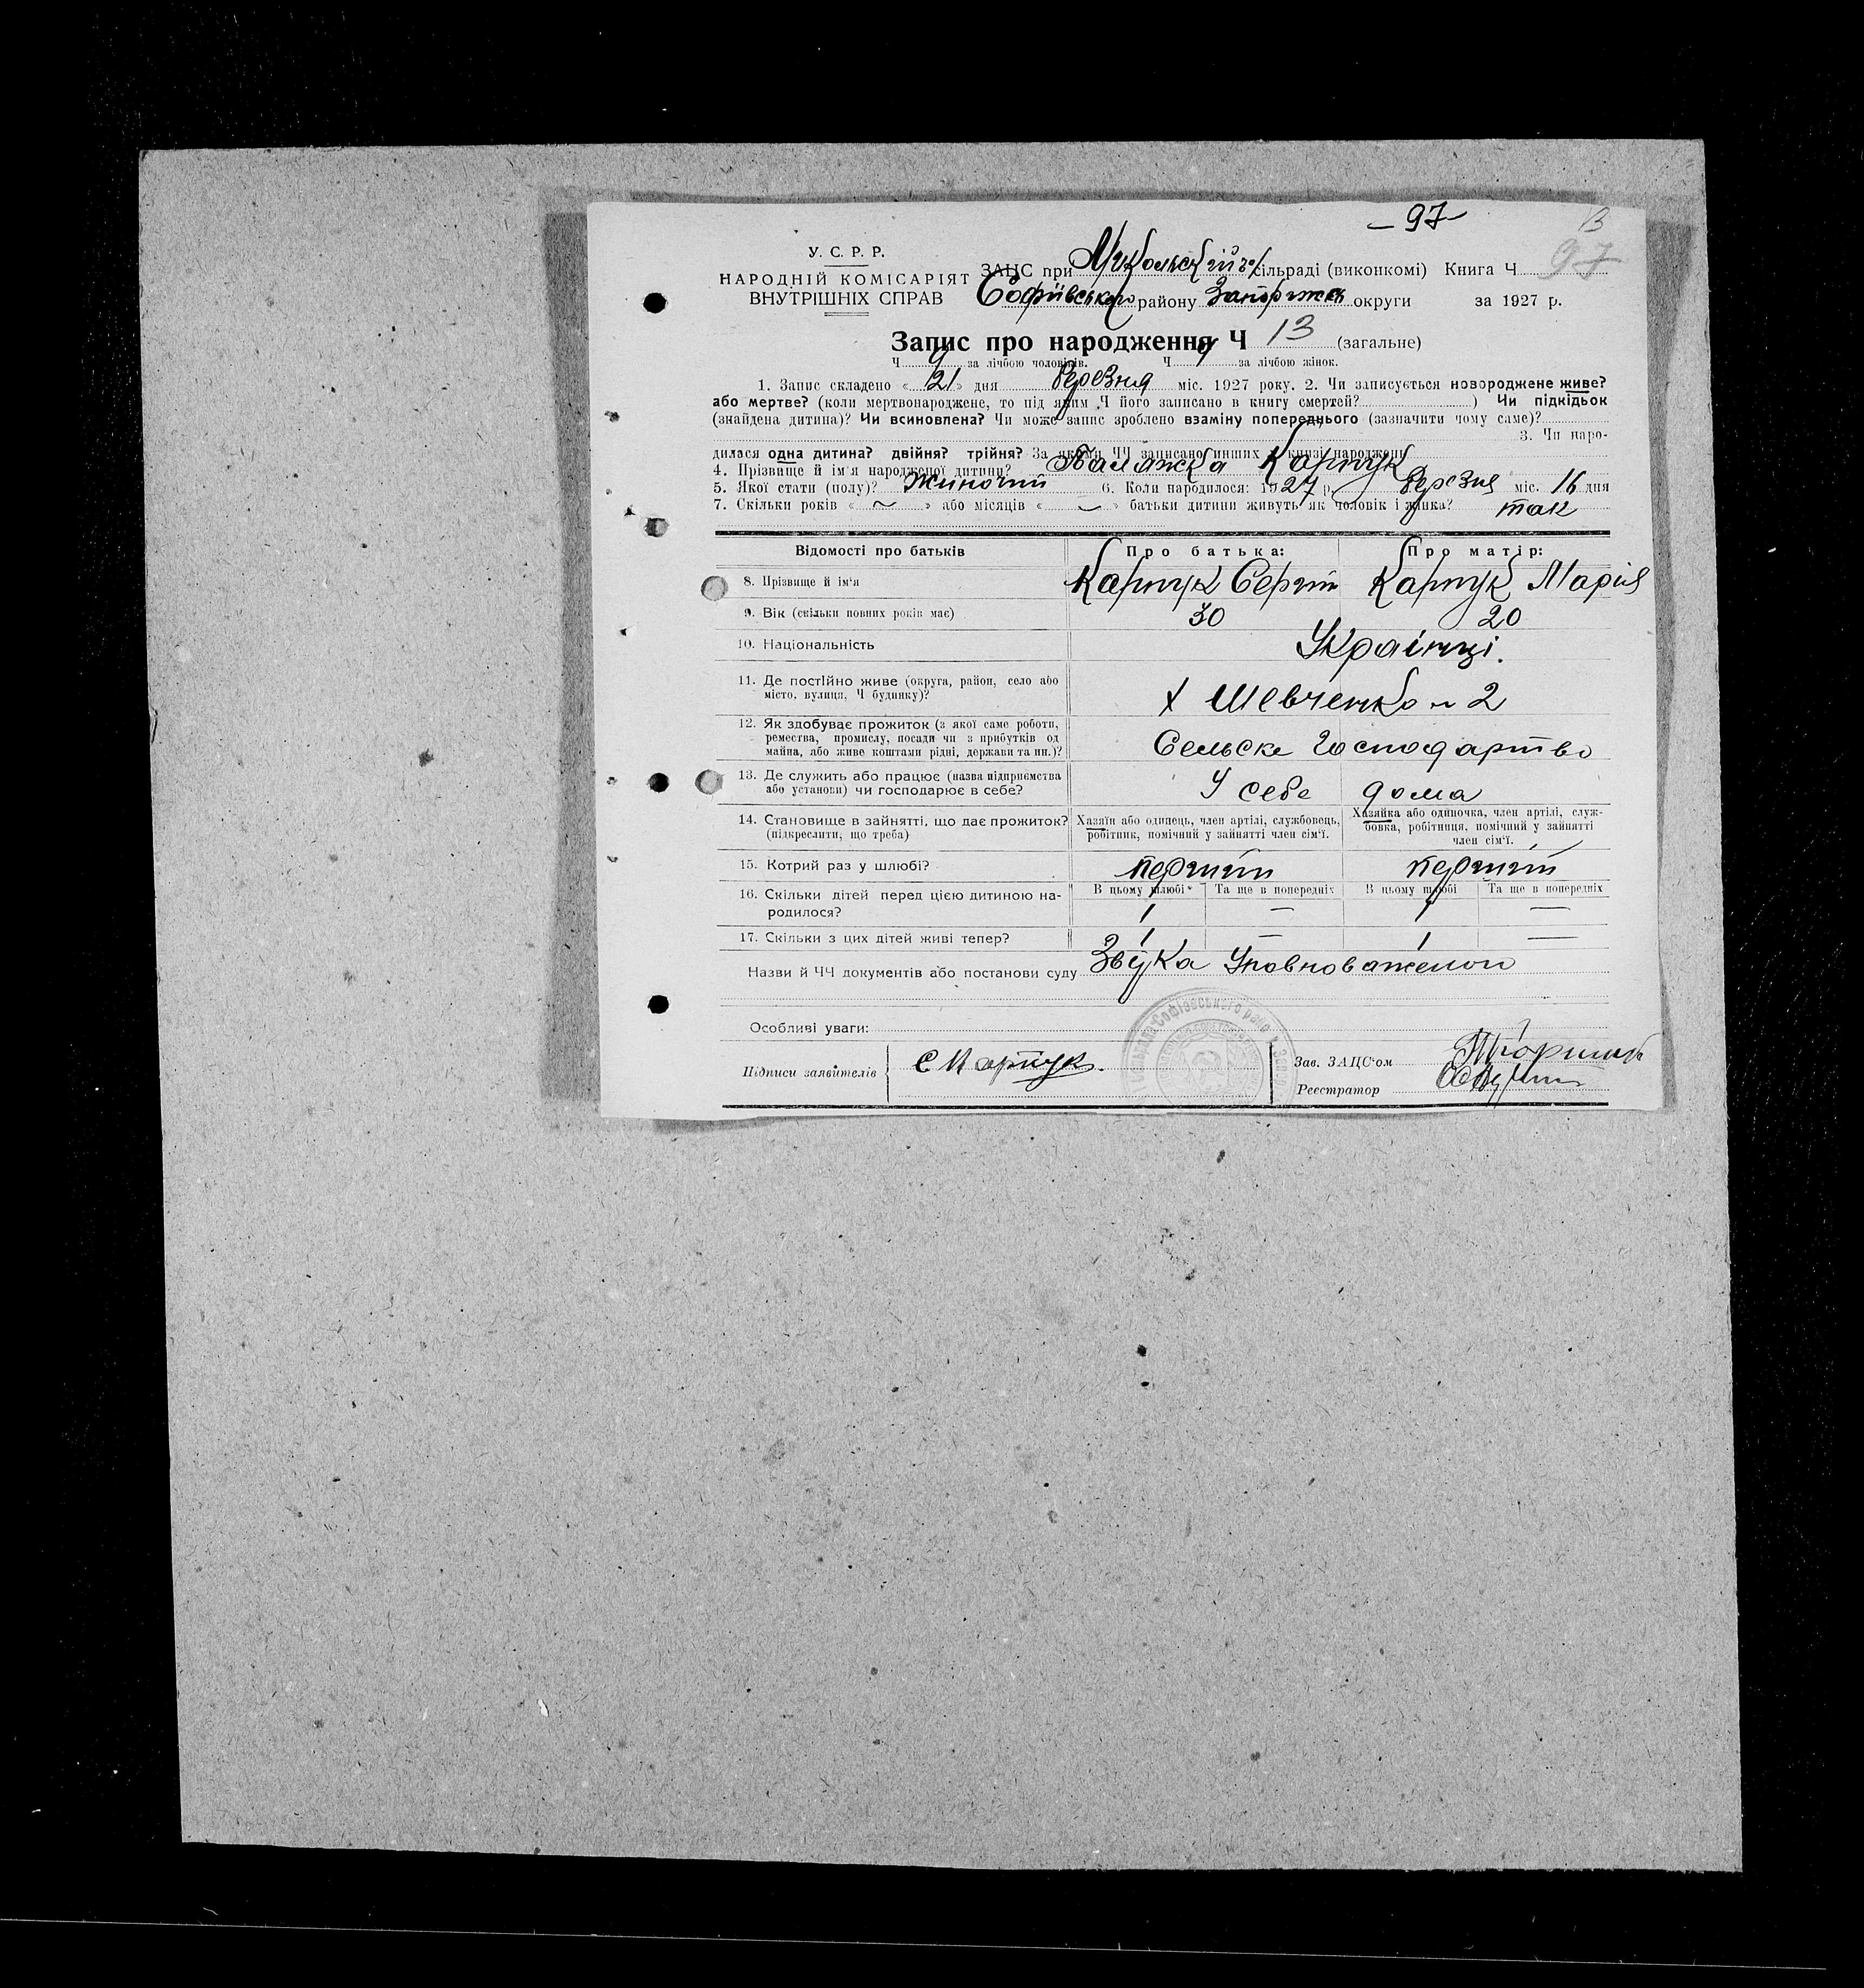 – 97 –
13
97
У. С. Р. Р.
НАРОДНІЙ КОМІСАРІЯТ
ВНУТРІШНІХ СПРАВ
ЗАЦС при Микольскій сільраді (виконкомі) Книга Ч
Софіївського району Запоріжж округи за 1927 р.
Запис про народження Ч 13 (загальне)
Ч 4 за лічбою чоловіків. Ч 9 за лічбою жінок.
1. Запис складено « 21 » дня березня міс. 1927 року. 2. Чи записується новороджене живе?
або мертве? (коли мертвонароджене, то під яким Ч його записано в книгу смертей? ) Чи підкідьок
(знайдена дитина)? Чи всиновлена? Чи може запис зроблено взаміну попереднього (зазначити чому саме)?
3. Чи наро-
дилася одна дитина? двійня? трійня? За якими ЧЧ записано инших в книзі народжень
4. Прізвище й ім'я народженої дитини? Палажка Карпук
5. Якої статі (полу)? Жиночий 6. Коли народилося: 1927 р. березня міс. 16 дня
7. Скільки років « ~ » або місяців « ~ » батьки дитини живуть як чоловік і жінка? так
Відомості про батьків Про батька: Про матір:
8. Прізвище й ім'я Карпук Сергій Карпук Марія
9. Вік (скільки повних років має) 30 20
10. Національність Українці.
11. Де постійно живе (округа, район, село або
місто, вулиця, Ч будинку)? Х Шевченко № 2
12. Як здобуває прожиток (з якої саме роботи,
ремества, промислу, посади чи з прибутків од
майна, або живе коштами рідні, держави та ин.)? Сельске Господартво
13. Де служить або працює (назва підприємства
або установи) чи господарює в себе? У себе дома
14. Становище в зайнятті, що дає прожиток?
(підкреслити, що треба)
Хазяїн або одинець, член артілі, службовець,
робітник, помічний у зайнятті член сім'ї.
Хазяйка або одиночка, член артілі, служ-
бовка, робітниця, помічний у зайнятті
член сім'ї.
15. Котрий раз у шлюбі? перший перший
16. Скільки дітей перед цією дитиною на-
родилося?
В цьому шлюбі Та ще в попередніх В цьому шлюбі Та ще в попередніх
1 — 1 —
17. Скільки з цих дітей живі тепер? 1 — 1 —
Назви й ЧЧ документів або постанови суду Звѣдка Уповноваженого
Особливі уваги:
Підписи заявителів С Карпук.
Зав. ЗАЦС'ом
Реєстратор
Софіївського райо